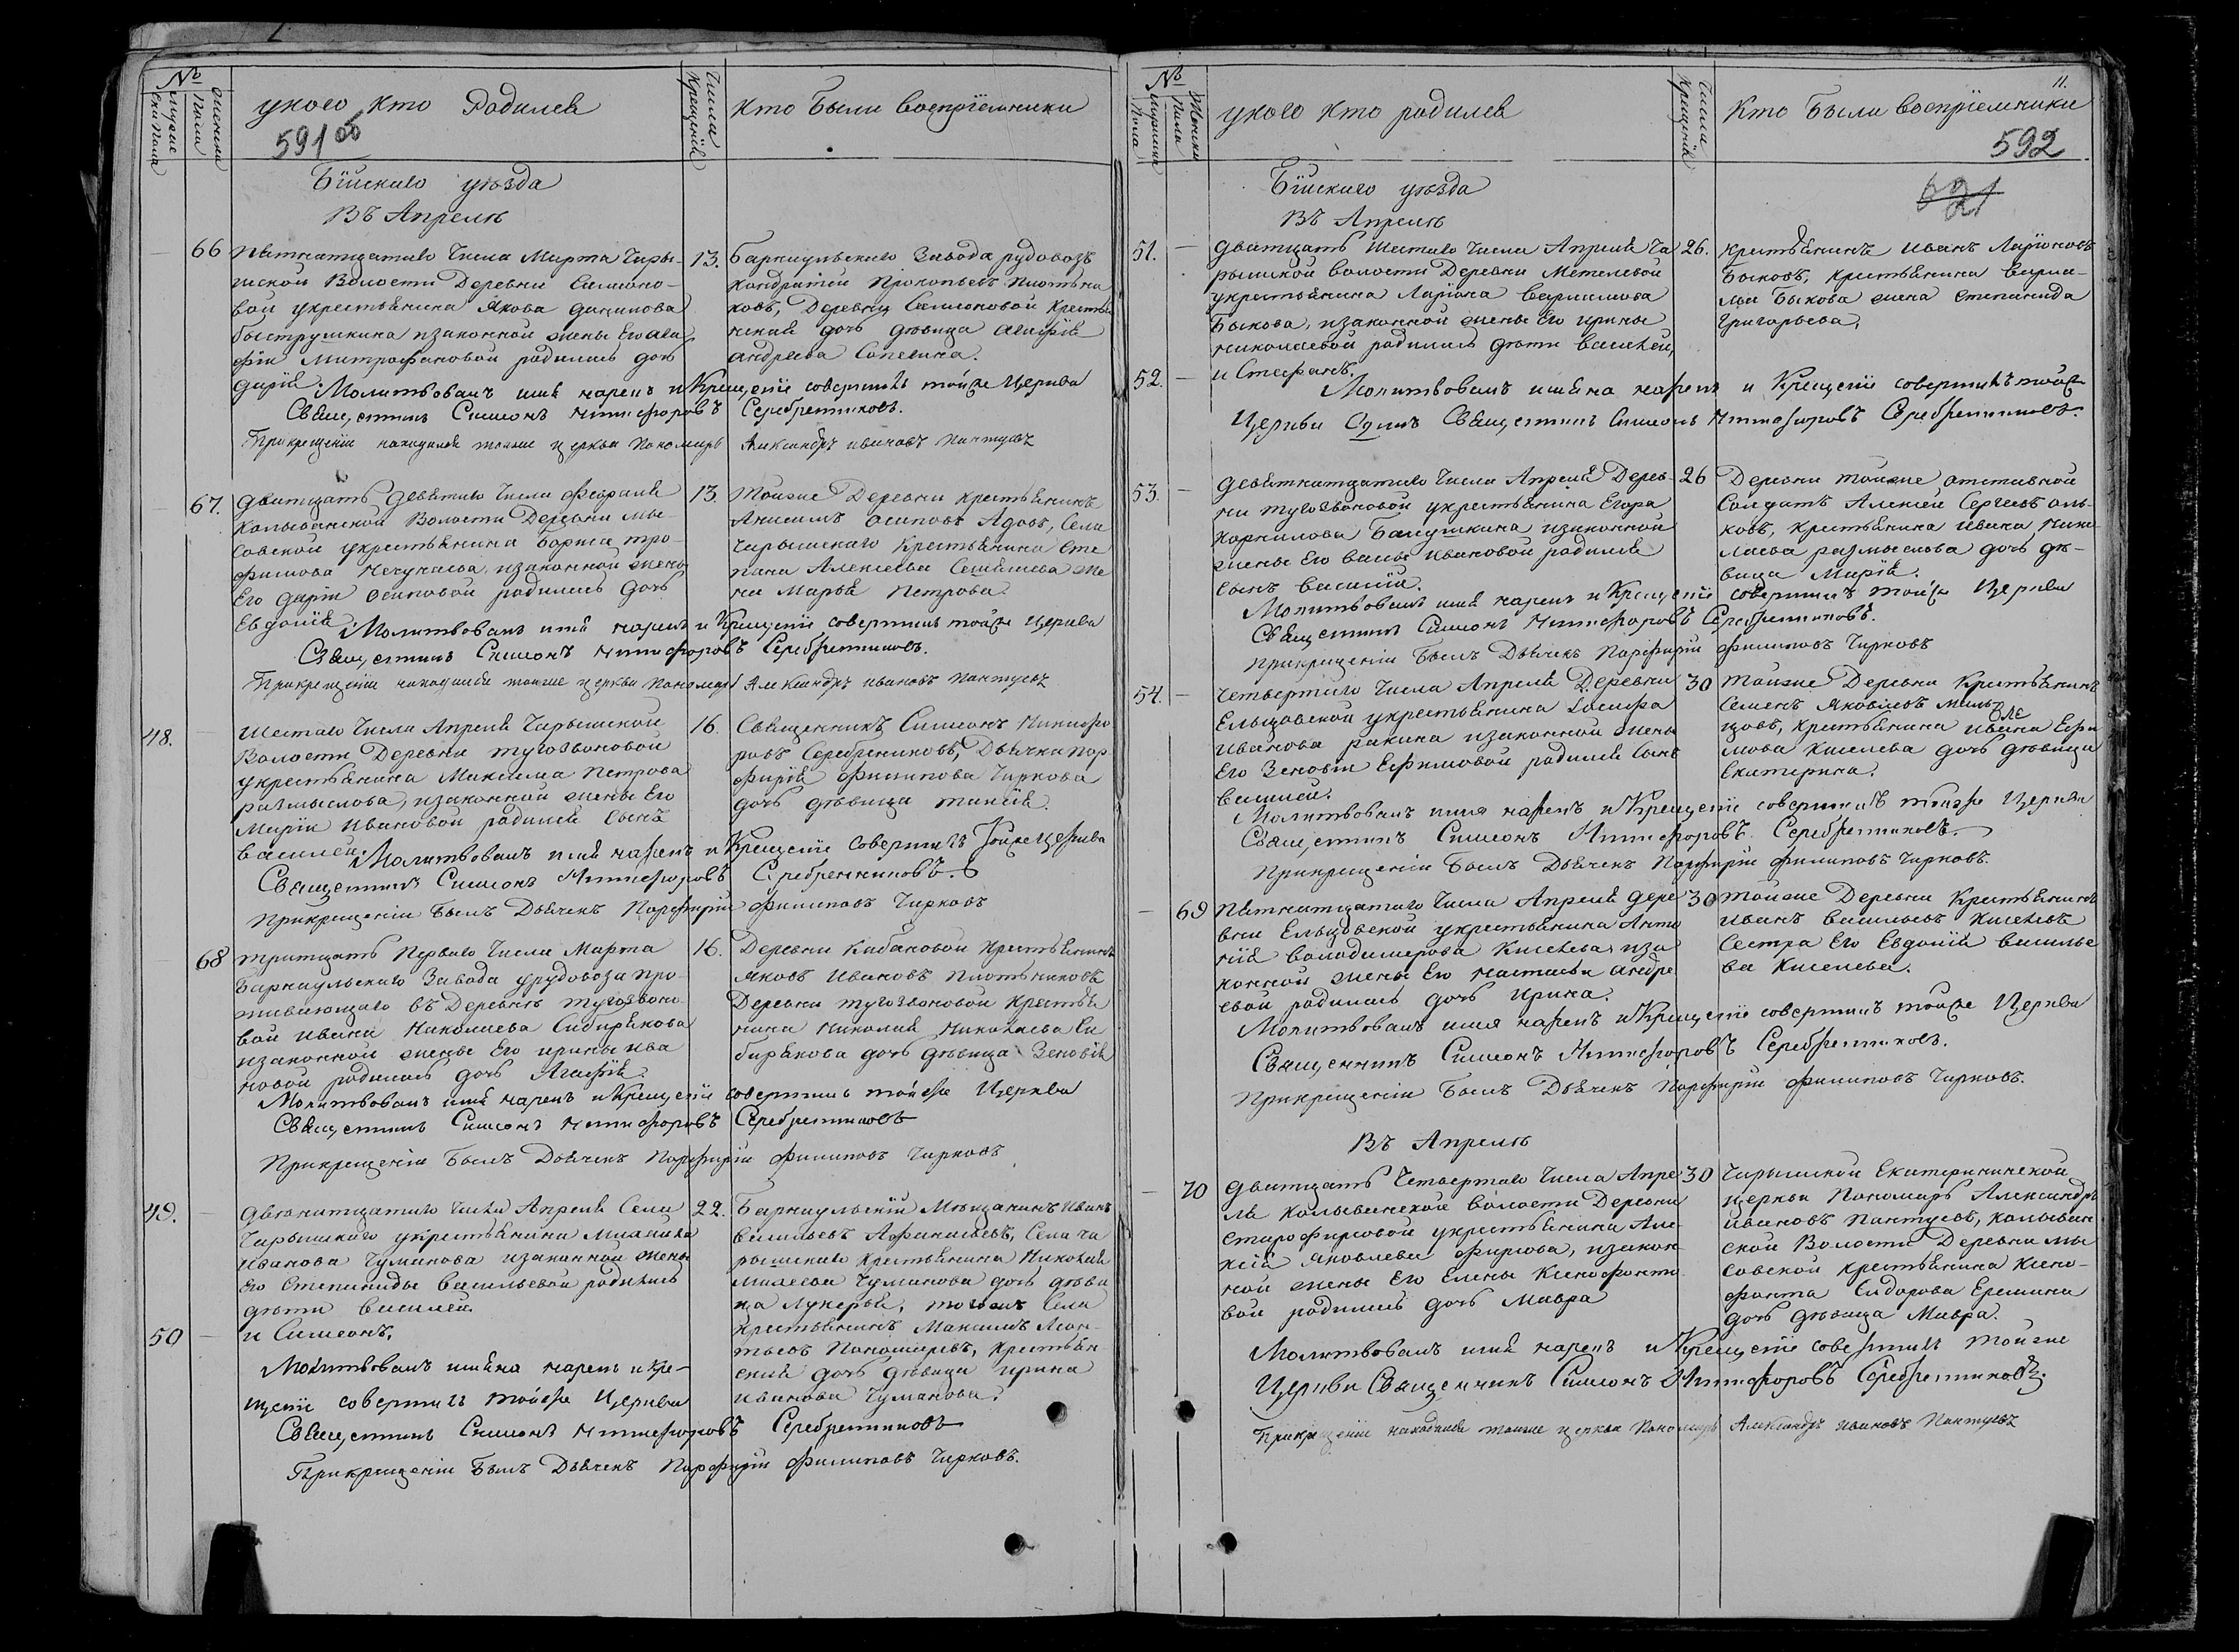 №
Мужеска пола
Женска пола
у кого кто Родился
591 об
Числа Крещенія
кто Были восприемники
Бійскаго уѣзда
Въ Апрелѣ
66
Пятнатцатаго Числа Марта Чары-
шской Волости Деревни Симоно-
вой укрестьянина Якова данилова
быструшкина изаконной жены Его ага
фіи Митрофановой родилась дочь
дарія.
13.
Барнаульскаго Завода рудовозъ
Кондратій Прокопьевъ Плотни
ковъ, Деревни Симоновой Кресть
нский дочь дѣвица Агафія
андреева Сопегина.
Молитвовалъ имя нарекъ и Крещеніе совершилъ тойже Церкви
Священникъ Симеонъ Никифоровъ Серебренниковъ.
Прикрещеніи находился тойже церкви Пономарь Александръ ивановъ Пантуевъ
67.
Дватцать девятаго Числа Февраля
Колыванской Волости Деревни мы-
совской укрестьянина бориса тро-
фимова Нечунаева, изаконной жены
Его дарьи осиповой родилась дочь
Евдокія.
13.
Тойже Деревни крестьянинъ
Анисимъ осиповъ Адовъ, Села
Чарышскаго Крестьянина Сте
пана Алексѣева же
на Марья Петрова.
Молитвовалъ имя нарекъ и Крещеніе совершилъ тойже Церкви
Священникъ Симеонъ Никифоровъ Серебренниковъ.
Прикрещеніи находился тойже церкви Пономарь Александръ ивановъ Пантуевъ
48.
Шестаго Числа Апреля Чарышской
Волости Деревни тугозвоновой
укрестьянина Максима Петрова
размыслова, изаконной жены Его
Маріи Ивановой родился Сынъ
василей.
16.
Священникъ Симеонъ Никифо
ровъ Серебренниковъ, Дьячка пор
фирія филипова Чиркова
дочь дѣвица таисія.
Молитвовалъ имя нарекъ и Крещеніе совершилъ тойже Церкви
Священникъ Симеонъ Никифоровъ Серебренниковъ.
Прикрещеніи былъ Дьячекъ Порфирій филиповъ Чирковъ
68
тритцать Перваго Числа Марта
Барнаульскаго Завода урудовоза про-
живающаго въ Деревнѣ тугозвоно-
вой ивана Николаева Сибирякова
изаконной жены Его ирины ива
новой родилась дочь Агафія.
16.
Деревни Кабановой Крестьянинъ
Яковъ Ивановъ Плотниковъ
Деревни тугозвоновой Крестья
нина Николая Николаева Си
бирякова дочь дѣвица Зеновія
Молитвовалъ имя нарекъ и Крещеніе совершилъ тойже Церкви
Священникъ Симеонъ Никифоровъ Серебренниковъ
Прикрещеніи Былъ Дьячекъ Порфирій филиповъ Чирковъ
49.
Двенатцатаго Числа Апреля Села
Чарышскаго укрестьянина Михаила
Иванова Чуманова изаконной жены
Его Степаниды васильевой родились
дѣти василей
50
и Симеонъ.
22.
Барнаульскій Мещанинъ Иванъ
Васильевъ Афанасьевъ, Села ча
рышскаго Крестьянина Николая
Чуманова дочь дѣви
ца Лукерья, тогожъ Села
крестьянинъ Максимъ Леон-
тьевъ Пономаревъ, крестьян-
ский дочь дѣвица ирина
иванова Чуманова.
Молитвовалъ имяна нарекъ и Кре-
щеніе совершилъ тойже Церкви
Священникъ Симеонъ Никифоровъ Серебренниковъ
Прикрещеніи Былъ Дьячекъ Порфирій филиповъ Чирковъ.
11.
№
Мужска пола
Женска пола
укого кто родился
Числа Крещенія
Кто Были восприемники
592
621
Бійскаго уѣзда
Въ Апрелѣ
51.
дватцать Шестаго Числа Апреля Ча
рышской волости Деревни Метелевой
укрестьянина Ларіона варламова
Быкова, изаконной жены Его ирины
николаевой родились дѣти василей,
52.
и Стефанъ.
26.
крестьянинъ иванъ Ларіоновъ
Быковъ, крестьянина варла-
ма Быкова жена степанида
Григорьева,
Молитвовалъ имяна нарекъ и Крещеніе совершилъ тойже
Церкви Одинъ Священникъ Симеонъ Никифоровъ Серебренниковъ.
53.
девятнатцатаго Числа Апреля Дерев-
ни тугозвоновой укрестьянина Егора
Корнилова Бапушкина изаконной
жены Его васы ивановой родился
сынъ василій.
26
Деревни тойже отставной
Солдатъ Алексѣй Сергѣевъ оль-
ковъ, крестьянина ивана нико-
лаева размыслова дочь дѣ-
вица Марія.
Молитвовалъ имя нарекъ и Крещеніе совершилъ тойже Церкви
Священникъ Симеонъ Никифоровъ Серебренниковъ.
Прикрещеніи Былъ Дьячекъ Порфирій филиповъ Чирковъ
54.
Четвертаго Числа Апреля Деревни
Ельцовской укрестьянина Іосифа
Иванова ракина изаконной жены
Его Зеновьи Ефимовой родился Сынъ
василей.
30
тойже Деревни Крестьянинъ
Семенъ Яковлевъ Мель
цовъ, крестьянина ивана Ефи
мова Киселева дочь дѣвица
Екатерина.
Молитвовалъ имя нарекъ и Крещеніе совершилъ тойже Церкви
Священникъ Симеонъ Никифоровъ Серебренниковъ.
Прикрещеніи Былъ Дьячекъ Порфирій филиповъ Чирковъ.
69
Пятнатцатаго Числа Апреля дере
вни Ельцовской укрестьянина Анто
нія володимерова Киселева, иза
конной жены Его настасьи андре
евой родилась дочь Ирина.
30
тойже Деревни Крестьянинъ
иванъ васильевъ Киселевъ
Сестра Его Евдокія василье
ва Киселева.
Молитвовалъ имя нарекъ и Крещеніе совершилъ тойже Церкви
Священникъ Симеонъ Никифоровъ Серебренниковъ.
Прикрещеніи Былъ Дьячекъ Порфирій филиповъ Чирковъ.
Въ Апрелѣ
70
дватцать Четвертаго Числа Апре
ля Колыванской волости Деревни
старофирсовой укрестьянина Але-
ксія Яковлева фирсова, изакон-
ной жены Его Елены Ксенофонто-
вой родилась дочь Мавра
30
Чарышской Екатерининской
церкви Пономарь Александръ
ивановъ Пантуевъ, Колыван-
ской Волости Деревни мы
совской крестьянина Ксено-
фонта Сидорова Еремина
дочь дѣвица Мавра.
Молитвовалъ имя нарекъ и Крещеніе совершилъ тойже
Церкви Священникъ Симеонъ Никифоровъ Серебренниковъ.
Прикрещеніи находился тойже церкви Пономарь Александръ ивановъ Пантуевъ